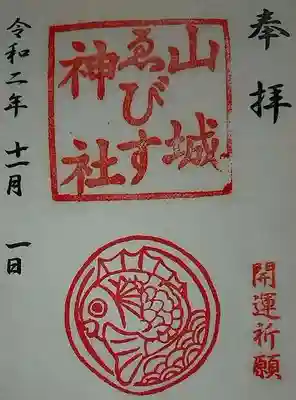 奉拝
山城
ゑびす
神社
開運祈願
令和二年 十一月 一日